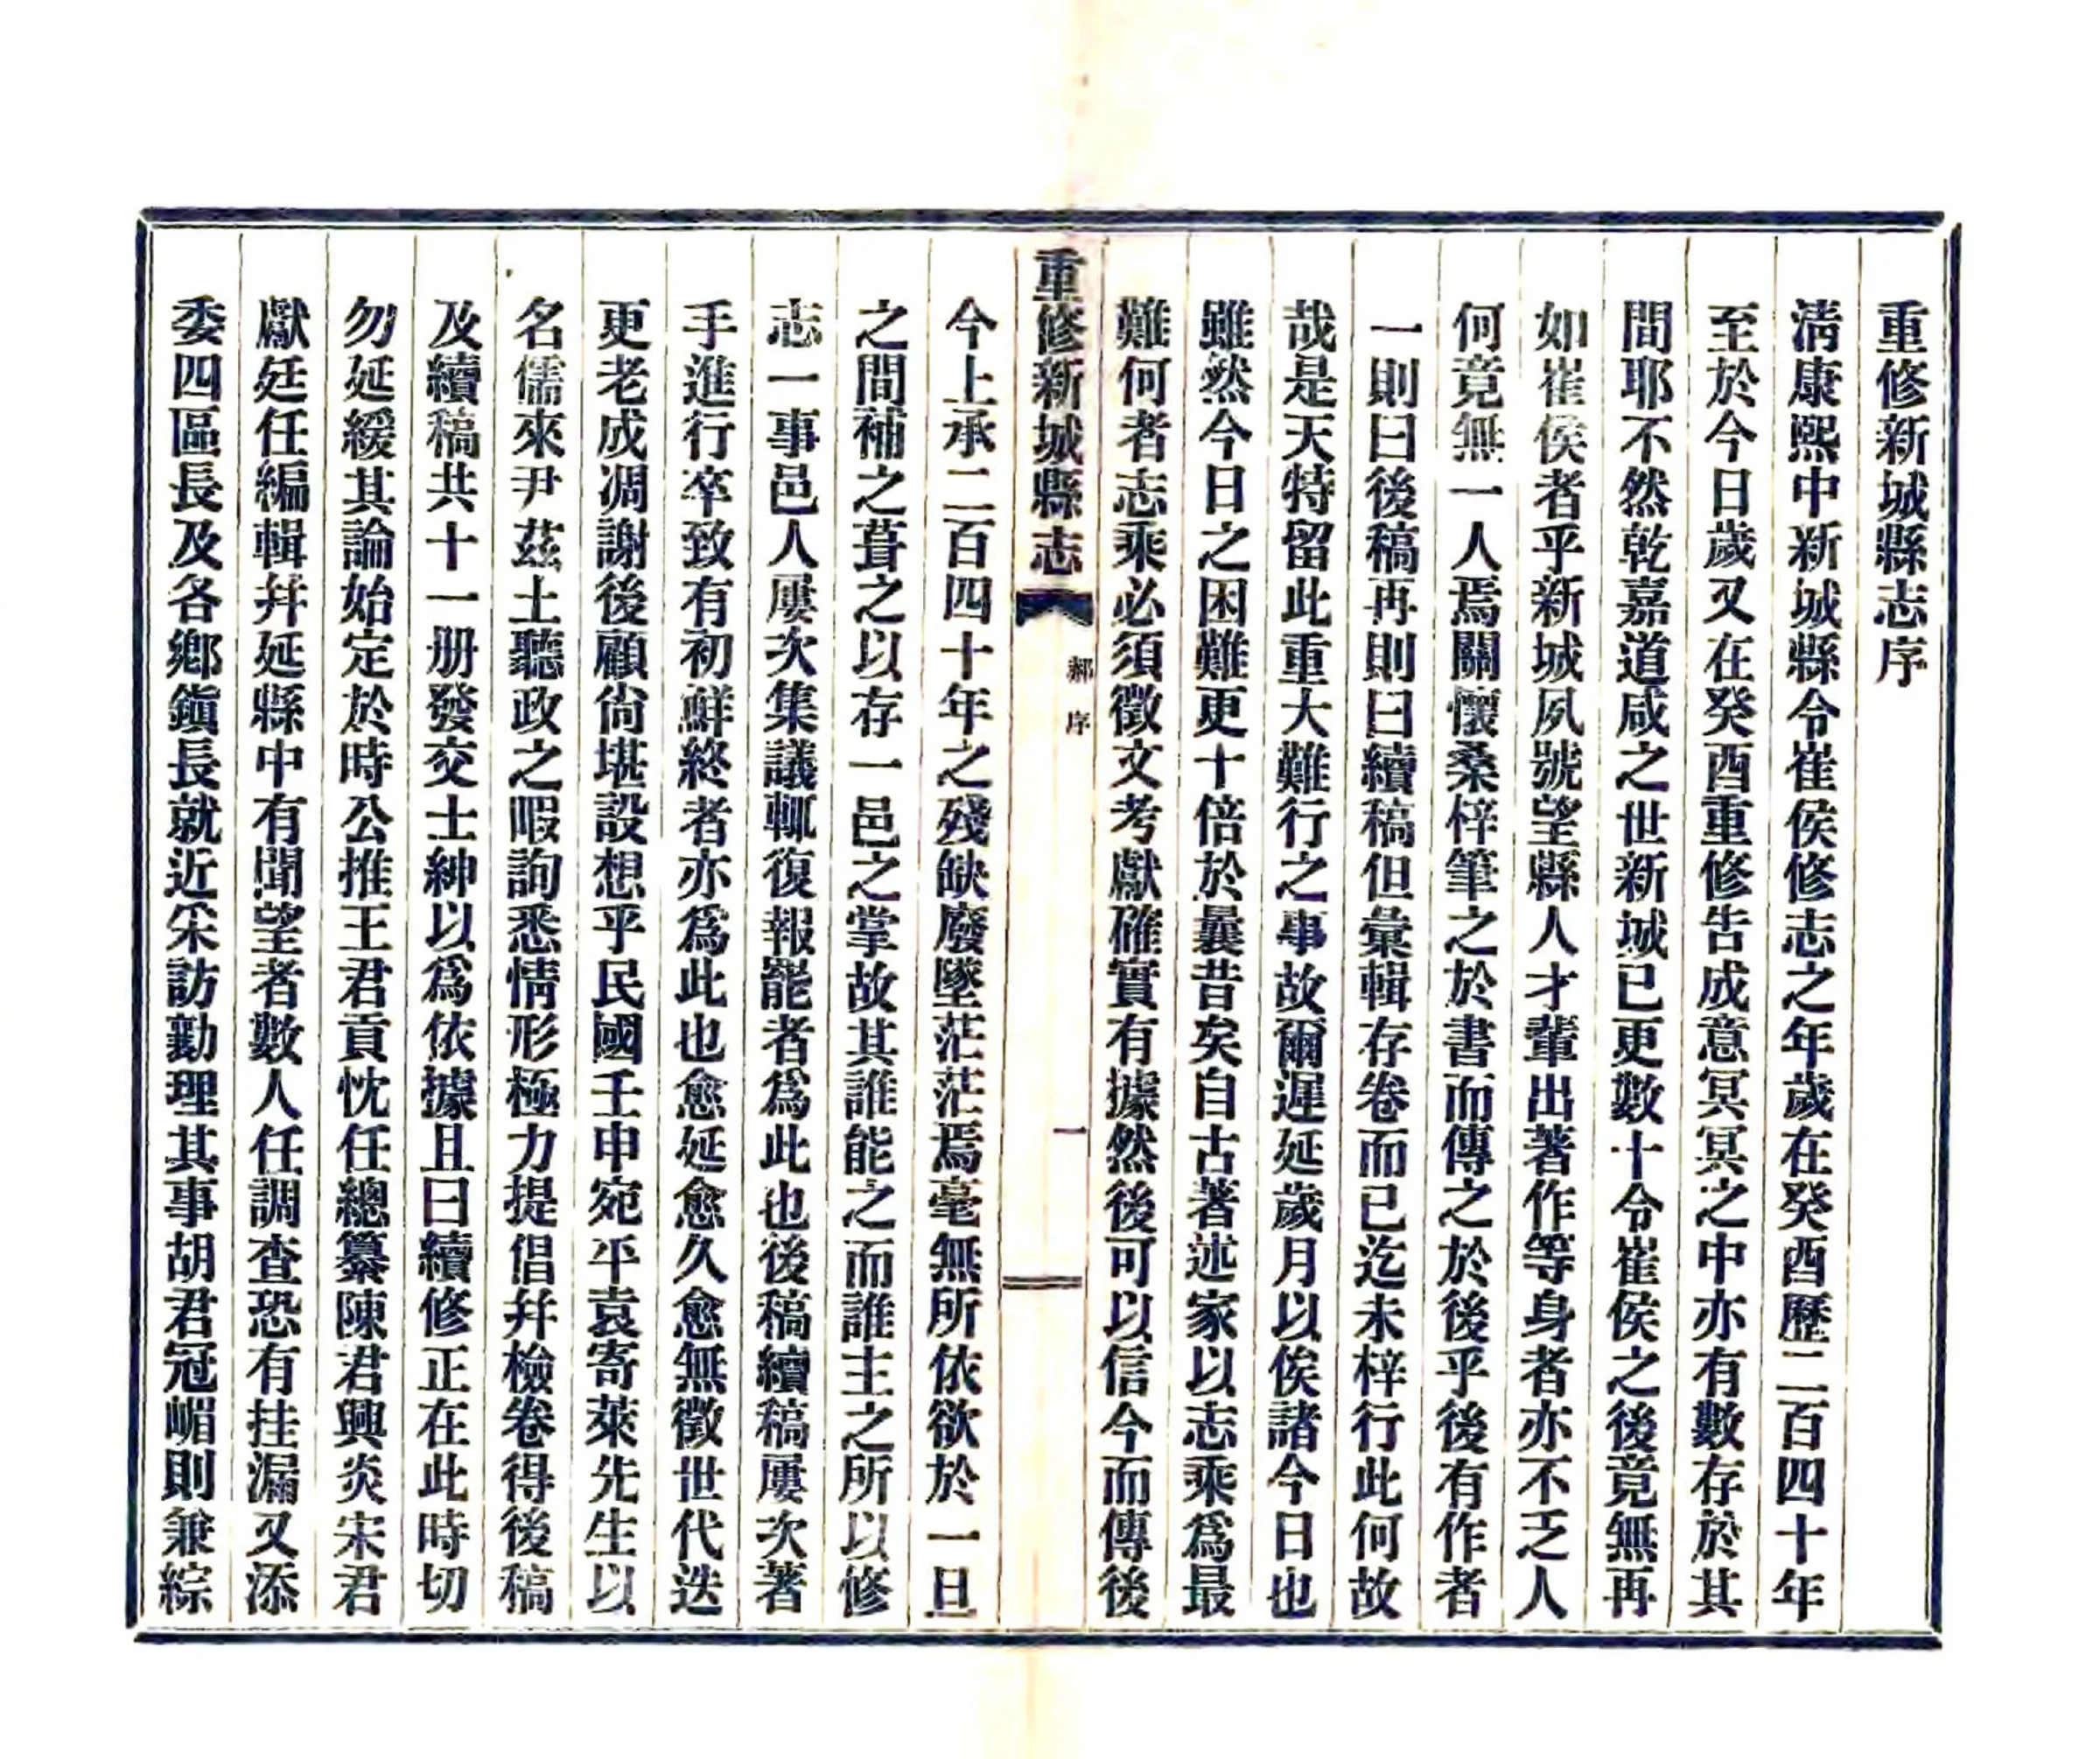 重修新城縣志序
淸康熙中新城縣令崔侯修志之年歲在癸酉歷二百四十年
至於今日歲又在癸酉重修告成意冥冥之中亦有數存於其
間耶不然乾嘉道咸之世新城已更數十令崔侯之後竟無再
如崔侯者乎新城夙號望縣人才輩出著作等身者亦不乏人
何竟無一人焉關懷桑梓筆之於書而傳之於後乎後有作者
一則曰後稿再則曰續稿但彙輯存卷而已迄未梓行此何故
哉是天特留此重大難行之事故爾遲延歲月以俟諸今日也
雖然今日之困難更十倍於曩昔矣自古著述家以志乘爲最
難何者志乘必須徵文考獻確實有據然後可以信今而傳後
重修新城縣志
郝序
一
今上承二百四十年之殘缺廢墜茫茫焉毫無所依欲於一旦
之間補之葺之以存一邑之掌故其誰能之而誰主之所以修
志一事邑人屢次集議輒復報罷者爲此也後稿續稿屢次著
手進行卒致有初鮮終者亦爲此也愈延愈久愈無徵世代迭
更老成凋謝後顧尙堪設想乎民國壬申宛平袁寄萊先生以
名儒來尹茲土聽政之暇詢悉情形極力提倡幷檢卷得後稿
及續稿共十一册發交士紳以爲依據且曰續修正在此時切
勿延緩其論始定於時公推王君貢忱任總纂陳君興炎宋君
獻廷任編輯幷延縣中有聞望者數人任調查恐有挂漏又添
委四區長及各鄉鎭長就近采訪勷理其事胡君冠嵋則兼綜